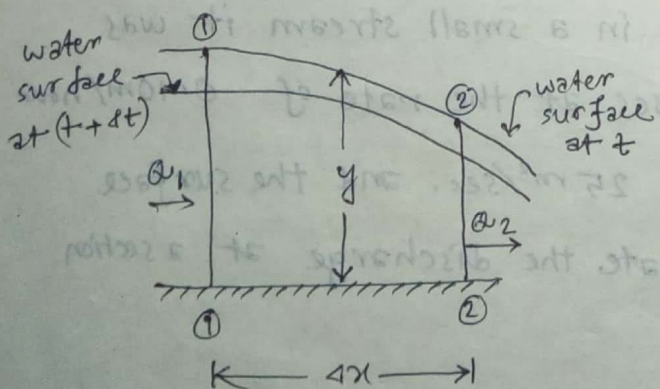 ①
water
surface
at (t + δt)
②
water
surface
at t
Q1
y
Q2
①
②
Δx